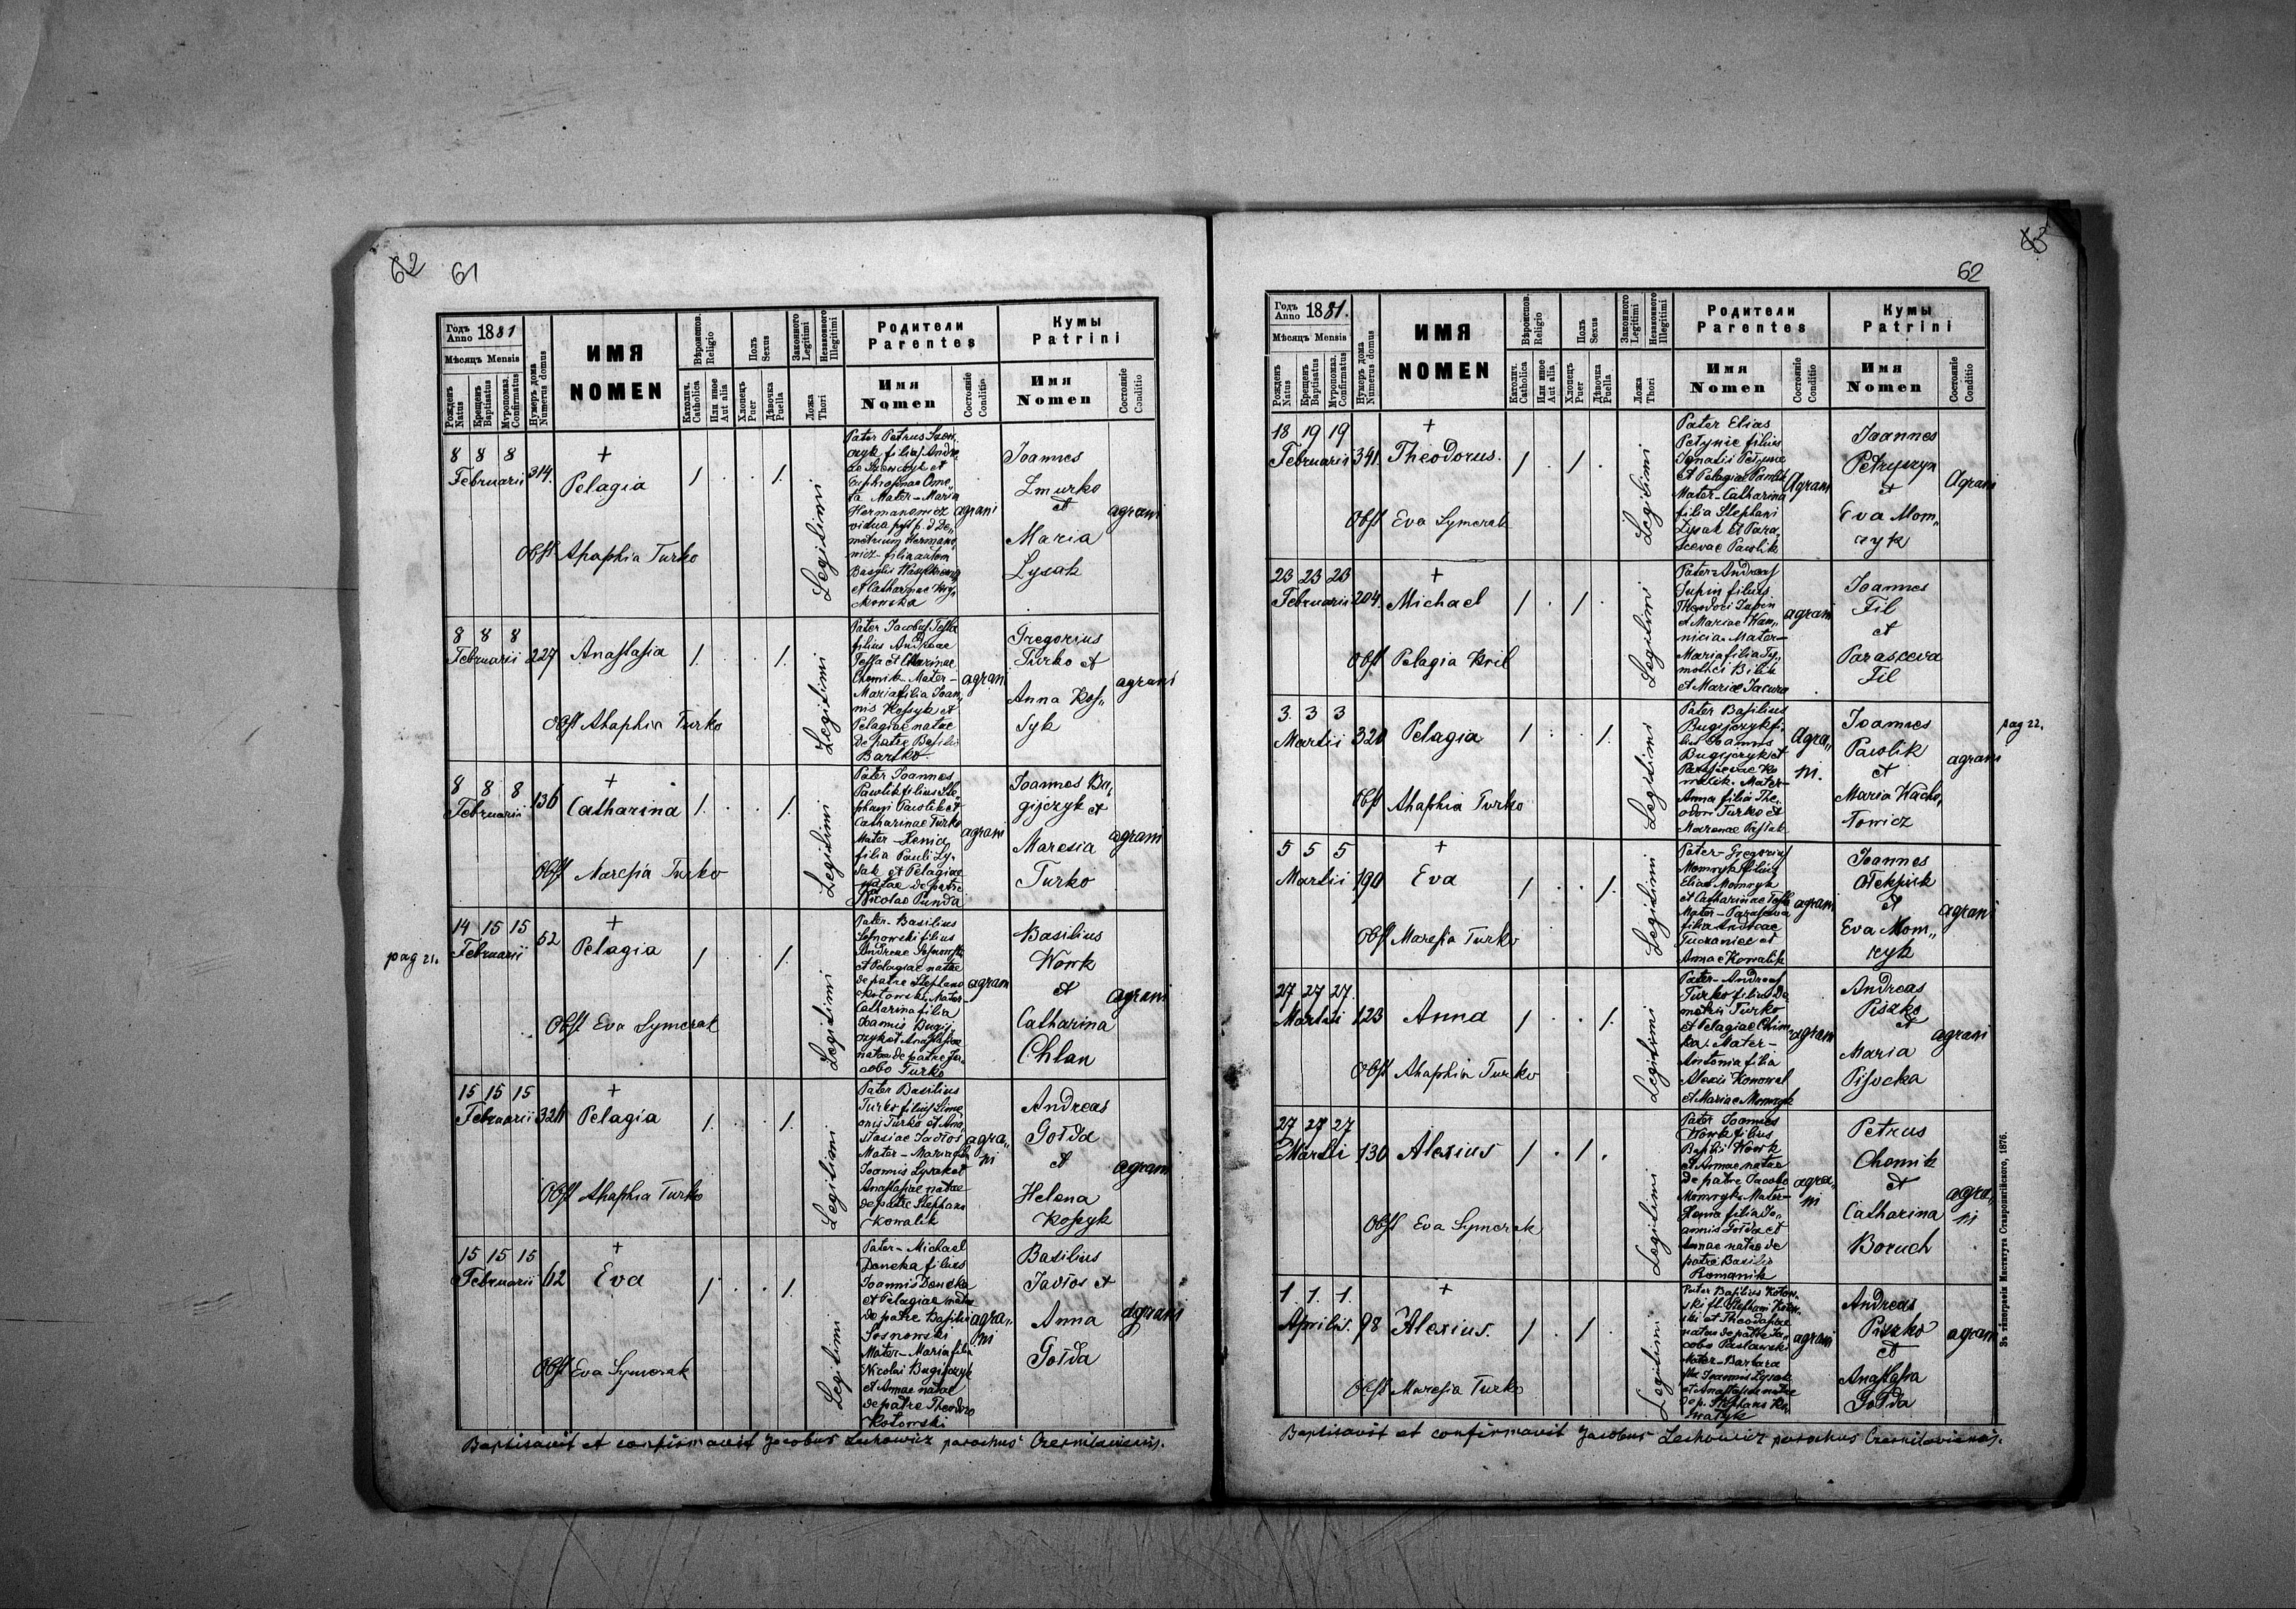 62 61
Годъ Anno 1881
Мѣсяцъ Mensis
Рожденъ Natus
Крещенъ Baptisatus
Муропомаз. Confirmatus
Нумеръ дома Numerus domus
ИМЯ
NOMEN
Вѣроисповѣд. Religio
Католич. Catholica
Или иное Aut alia
Полъ Sexus
Хлопецъ Puer
Дѣвочка Puella
Законного Legitimi
Незаконного Illegitimi
Ложа Thori
Родители
Parentes
Имя
Nomen
Состояніе Conditio
Кумы
Patrini
Имя
Nomen
Состояніе Conditio
8 8 8
Februarii 314.
+
Pelagia
1 . . 1.
Obst Ahaphia Turko
Legitimi
Pater Petrus
Mater - Maria
Hermanowicz
vidua post p. d De„
metrium Hermano„
wicz - filia autem
et Catharinae
agrani
Joannes
Zmurko
et
Maria
Lysak
agrani
8 8 8
Februarii 227
Anastasia
1. . . 1.
Obst Ahaphia Turko
Legitimi
Pater Jacobus Tessa
filius Andreae
Tessa et Charinae
Chomik - Mater -
Maria filia Joan„
nis Kossyk et
Pelagiae natae
de patre Basilio
Bartko
agrani
Gregorius
Turko et
Anna Kos„
syk
agrani
8 8 8
Februarii 136
+
Catharina
1. . . 1.
Obst Maresia Turko
Legitimi
Pater Joannes
Pawlik filius Ste„
phani Pawlik et
Catharinae Turko
Mater - Xenia
filia Pauli Ly„
sak et Pelagiae
natae de patre
Nicolao Punda
agrani
Joannes Bu„
gijczyk et
Maresia
Turko
agrani
pag 21.
14 15 15
Februarii 52
+
Pelagia
1 . . 1.
Obst Eva Symczak
Legitimi
Pater - Basilius
Sosnowski filius
Andreae Sosnowski
et Pelagiae natae
de patre Stephano
Kotowski. Mater -
Catharina filia
Joannis Bugij„
czyk et Anastasiae
natae de patre Ja„
cobo Turko
agrani
Basilius
Wowk
et
Catharina
Chlan
agrani
15 15 15
Februarii 326
+
Pelagia
1. . . 1.
Obst Ahaphia Turko
Legitimi
Pater Basilius
Turko filius Sime„
onis Turko et Ana„
stasiae Jadłos
Mater - Maria filia
Joannis Lysak et
Anastasiae natae
de patre Stephano
Kowalik
agra„
ni
Andreas
Gołda
et
Helena
Kossyk
agrani
15 15 15
Februarii 62
+
Eva
1 . . 1.
Obst Eva Symczak
Legitimi
Pater - Michael
Doneka filius
Joannis Doneka
et Pelagiae natae
de patre Basilio
Sosnowski
Mater - Maria filia
Nicolai Bugijczyk
et Annae natae
de patre Theodoro
Kotowski
agra„
ni
Basilius
Jadłos et
Anna
Gołda
agrani
Baptisavit et confirmavit Jacobus Lechowicz parochus Czernilaviensis.
63
62
Годъ Anno 1881.
Мѣсяцъ Mensis
Рожденъ Natus
Крещенъ Baptisatus
Муропомаз. Confirmatus
Нумеръ дома Numerus domus
ИМЯ
NOMEN
Вѣроисповѣд. Religio
Католич. Catholica
Или иное Aut alia
Полъ Sexus
Хлопецъ Puer
Дѣвочка Puella
Законного Legitimi
Незаконного Illegitimi
Ложа Thori
Родители
Parentes
Имя
Nomen
Состояніе Conditio
Кумы
Patrini
Имя
Nomen
Состояніе Conditio
18 19 19
Februarii 341.
+
Theodorus.
1 . 1 .
Obst Eva Symczak
Legitimi
Pater Elias
filius
Ignatii
et Pelagiae Pawlik
Mater - Catharina
filia Stephani
Lysak et Para„
scevae Pawlik
Agrani
Joannes
Petryszyn
et
Eva Mom„
ryk
Agrani
23 23 23
Februarii 204.
+
Michael
1 . 1 .
Obst Pelagia Kril
Legitimi
Pater Andreas
Jupin filius
Theodori Jupin
et Mariae
Mater -
Maria filia Ty„
mothei Bilik
et Mariae Jacura
agrani
Joannes
Fil
et
Parasceva
Fil
3. 3 3
Martii 320
Pelagia
1 . . 1.
Obst Ahaphia Turko
Legitimi
Pater Basilius
Bugijczyk fi„
lius Joannis
Bugijczyk et
Parascevae Ko„
walik. Mater -
Anna filia The„
odori Turko et
Marenae
Agra„
ni.
Joannes
Pawlik
et
Maria Wacho„
towicz
agrani
pag 22.
5 5 5
Martii 190
+
Eva
1 . . 1.
Obst Maresia Turko
Legitimi
Pater - Gregorius
Momryk filius
Eliae Momryk
et Catharinae Tessa
Mater - Parasceva
filia Andreae
et
Annae Kowalik
agrani
Joannes
et
Eva Mom„
ryk
agrani
27 27 27.
Martii 123
Anna
1 . . 1.
Obst Ahaphia Turko
Legitimi
Pater - Andreas
Turko filius De„
metrii Turko
et Pelagiae Chim„
ka. Mater -
Antonia filia
Alexii Konowal
et Mariae Momryk
agrani
Andreas
Piszko
et
Maria
Pisocka
agrani
27 27 27
Martii 130
Alexius.
1 . 1 .
Obst Eva Symczak
Legitimi
Pater Joannes
Wowk filius
Basilii Wowk
et Annae natae
de patre Jacobo
Momryk. Mater -
Xenia filia Jo„
annis Gołda et
Annae natae de
patre Basilio
Romanik
agra„
ni
Petrus
Chomik
et
Catharina
Boruch
agra„
ni
1 1. 1.
Aprilis. 98
+
Alexius.
1 . 1 .
Obst Maresia Turko
Legitimi
Pater Basilius Kotow„
ski fil. Stephani Kotow„
ski et Theodosiae
natae de patre Ja„
cobo Pasławski
Mater - Barbara
filia Joannis Lysak
et Anastasiae natae
de p. Stephano Ku„
agrani
Andreas
Piszko
et
Anastasia
Gołda
agrani
Baptisavit et confirmavit Jacobus Lechowicz parochus Czernilaviensis.
Зъ типографіи Института Ставропигійского, 1876.